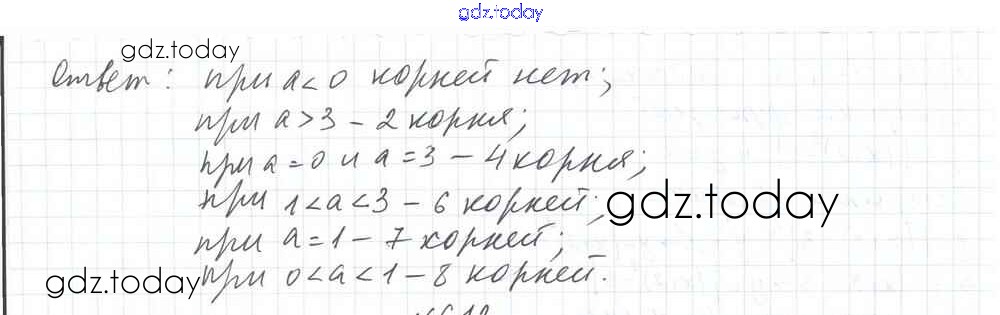 gdz.today
gdz.today
Ответ: при a<0 корней нет;
при a>3 – 2 корня;
при a=0 и a=3 – 4 корня;
при 1<a<3 – 6 корней;
gdz.today
при a=1 – 7 корней;
gdz.today
при 0<a<1 – 8 корней.